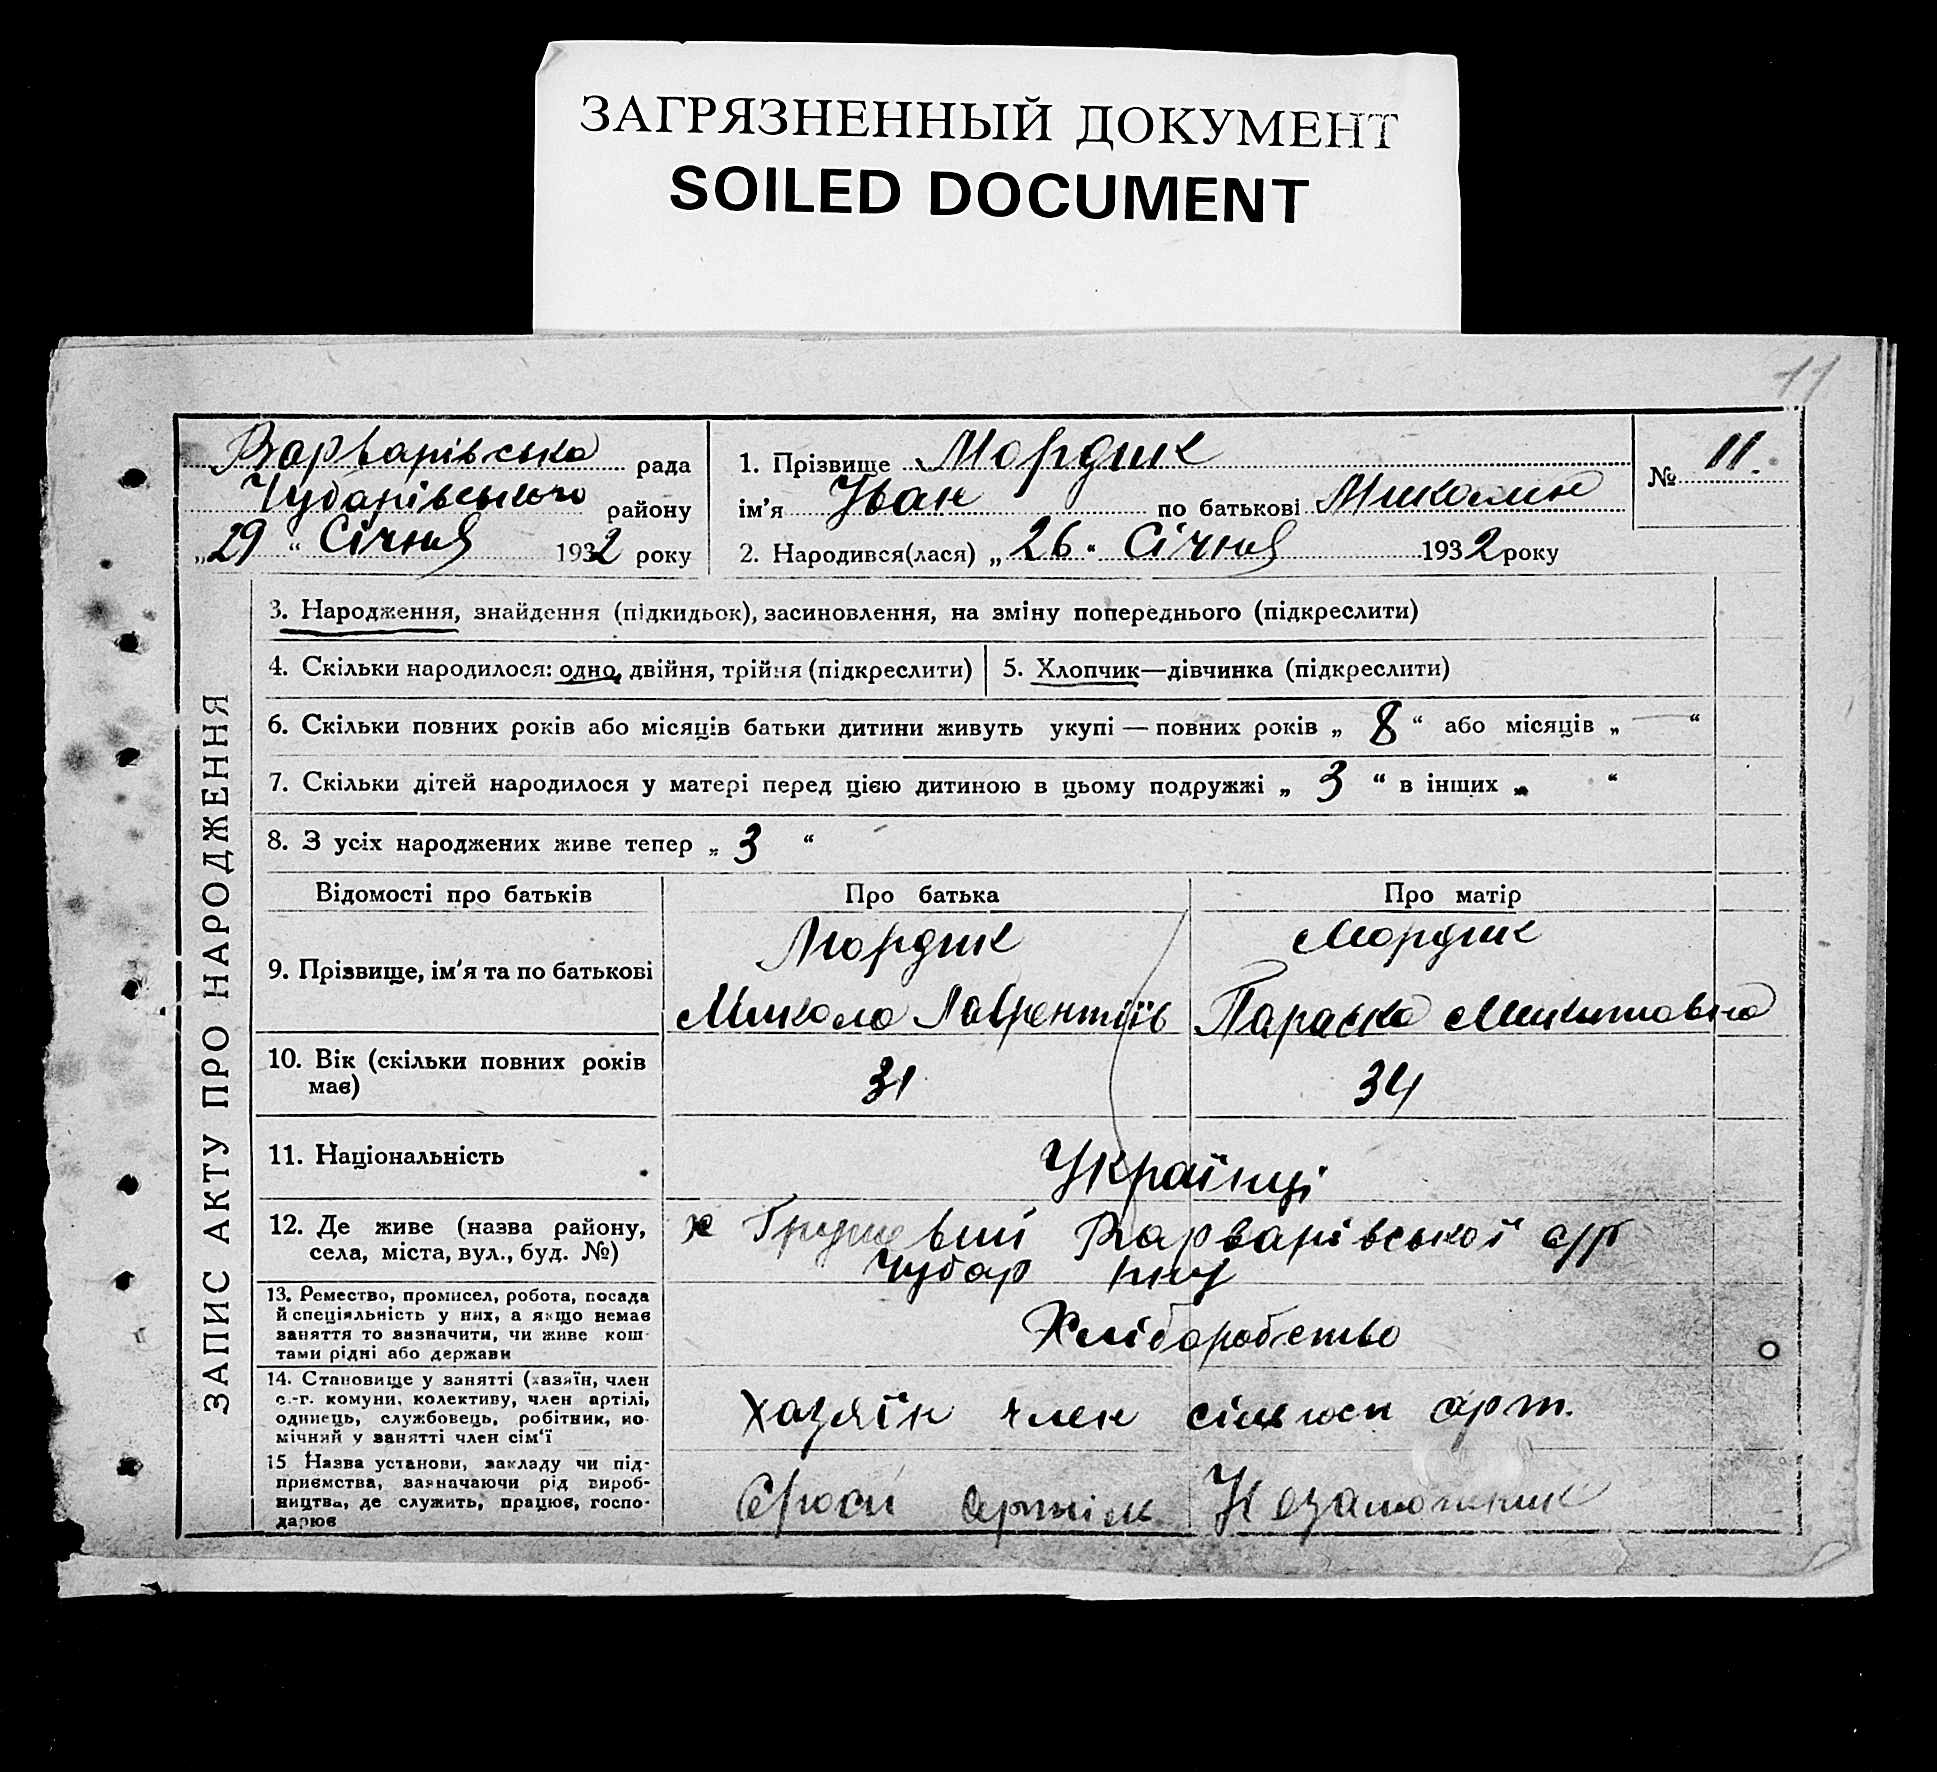 ЗАГРЯЗНЕННЫЙ ДОКУМЕНТ
SOILED DOCUMENT
11
Варварівська рада
Чубарівського району
„29“ Січня 1932 року
1. Прізвище Мордик
ім'я Іван по батькові Миколин
2. Народився(лася) „26“ Січня 1932 року
№ 11.
ЗАПИС АКТУ ПРО НАРОДЖЕННЯ
3. Народження, знайдення (підкидьок), засиновлення, на зміну попереднього (підкреслити)
4. Скільки народилося: одно, двійня, трійня (підкреслити)
5. Хлопчик—дівчинка (підкреслити)
6. Скільки повних років або місяців батьки дитини живуть укупі — повних років „ 8 “ або місяців „ — “
7. Скільки дітей народилося у матері перед цією дитиною в цьому подружжі „ 3 “ в інших „ “
8. З усіх народжених живе тепер „ 3 “
Відомості про батьків
Про батька
Про матір
9. Прізвище, ім'я та по батькові
Мордик
Микола Лаврентіїв
Мордик
Параска Микитовна
10. Вік (скільки повних років
має)
31
34
11. Національність
Українці
12. Де живе (назва району,
села, міста, вул., буд. №)
х Грушевий Варварівської с/р
Чубар р-ну
13. Ремество, промисел, робота, посада
й спеціяльність у них, а якщо немає
заняття то визначити, чи живе кош-
тами рідні або держави
Хліборобство
14. Становище у занятті (хазяїн, член
с.-г. комуни, колективу, член артілі,
одинець, службовець, робітник, по-
мічний у занятті член сім'ї
Хазяїн член сільгосп арт.
15 Назва установи, закладу чи під-
приємства, зазначаючи рід вироб-
ництва, де служить, працює, госпо-
дарює
артіль Незаможник